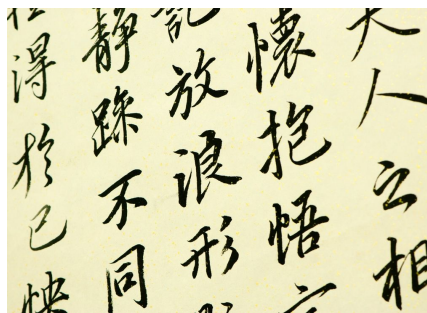 夫人之相
懷抱悟
放浪形
靜躁不同
得於己快